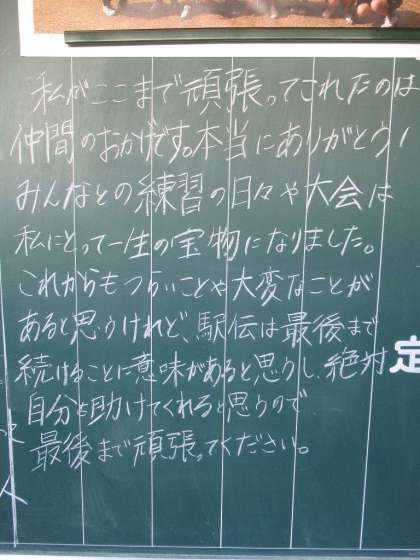 私がここまで頑張ってこれたのは
仲間のおかげです。本当にありがとう!
みんなとの練習の日々や大会は
私にとって一生の宝物になりました。
これからもつらいことや大変なことが
あると思うけれど、駅伝は最後まで
続けることに意味があると思うし、絶対
自分を助けてくれると思うので
最後まで頑張ってください。
定
人